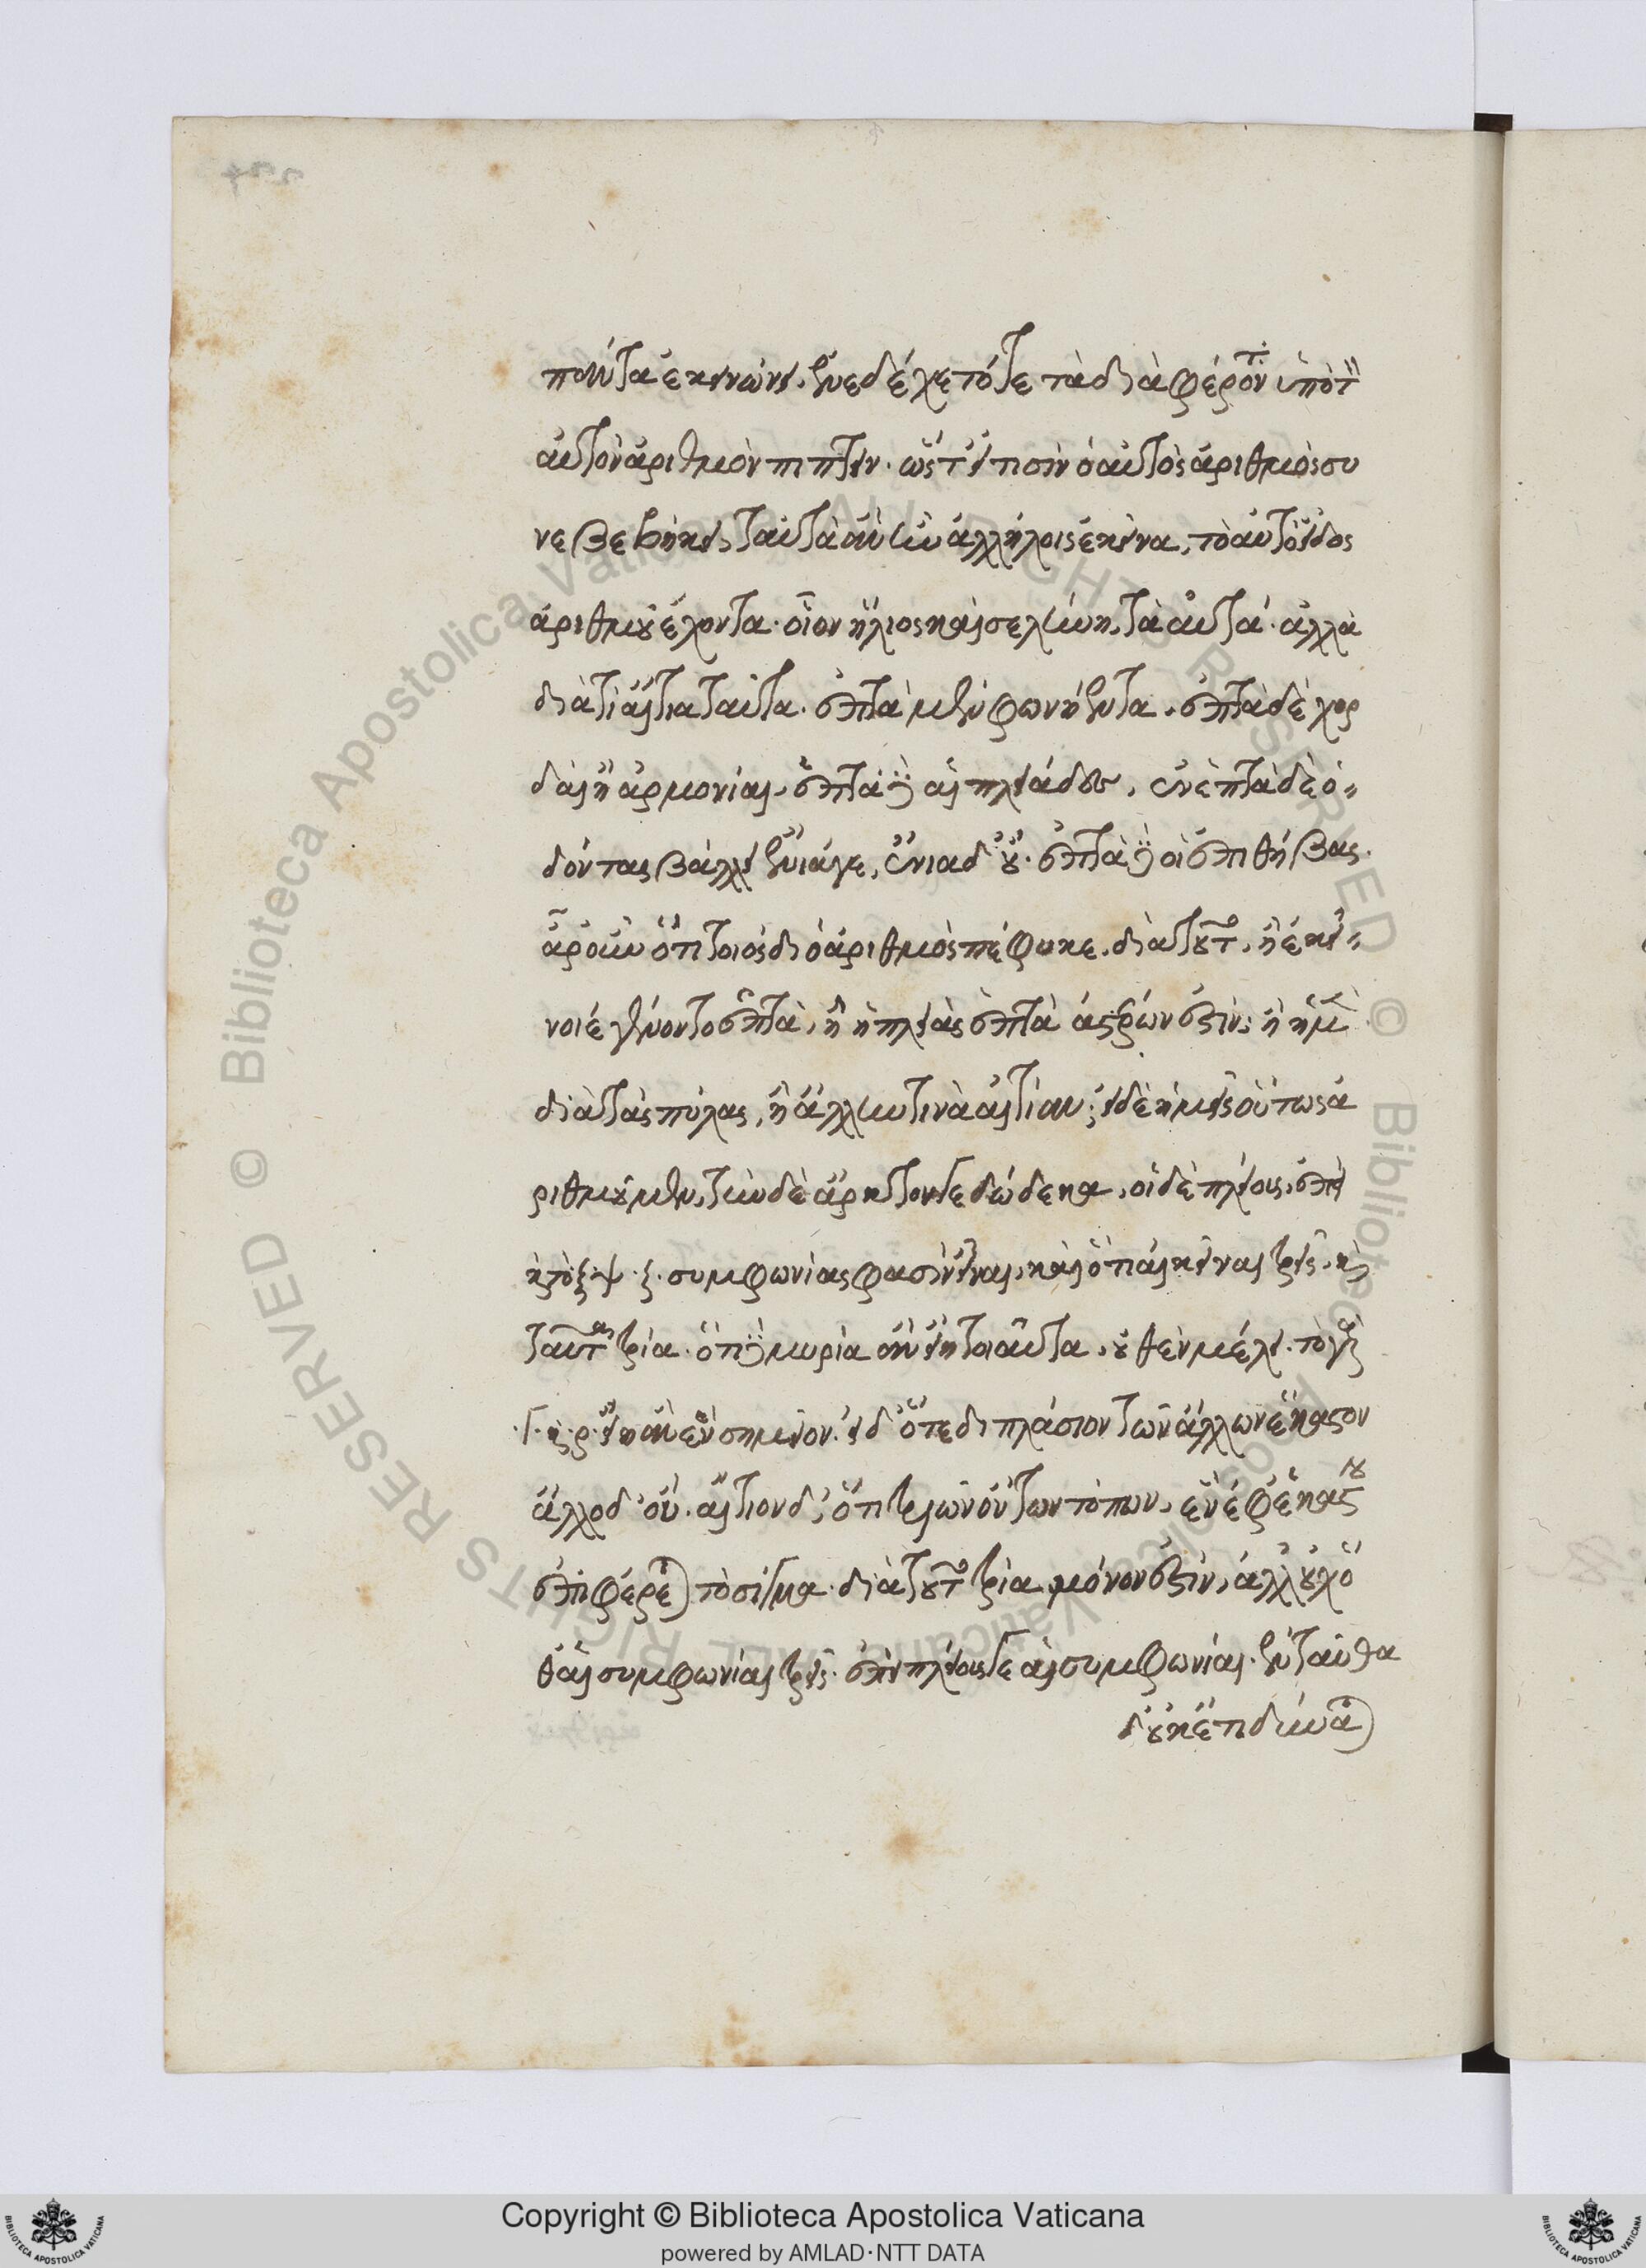 πάντα ἐκείνων. ἐνεδέχετό τε τὰ διαφέροντα ὑπὸ τὸν
αὐτὸν ἀριθμὸν πίπτειν. ὥστ' εἴ τισιν ὁ αὐτὸς ἀριθμὸς συ
νεβεβήκει, ταὐτὰ ἂν ἦν ἀλλήλοις ἐκεῖνα, τὸ αὐτὸ εἶδος
ἀριθμοῦ ἔχοντα. οἷον ἥλιος καὶ σελήνη, τὰ αὐτά. ἀλλὰ
διὰ τί αἴτια ταῦτα. ἑπτὰ μὲν φωνήεντα. ἑπτὰ δὲ χορ
δαὶ ἢ ἁρμονίαι. ἑπτὰ δὲ αἱ πλειάδες, ἐν ἑπτὰ δὲ ὀ-
δόντας βάλλει ἔνιά γε, ἔνια δ' οὔ. ἑπτὰ δὲ οἱ ἐπὶ θήβας.
ἆρ' οὖν ὅτι τοιοσδὶ ὁ ἀριθμὸς πέφυκε. διὰ τοῦτο, ἢ ἐκεῖ-
νοι ἐγένοντο ἑπτὰ, ἢ ἡ πλειὰς ἑπτὰ ἀστέρων ἐστίν; ἢ οἱ μὲν
διὰ τὰς πύλας, ἢ ἄλλην τινὰ αἰτίαν; ἡ δὲ ἡμεῖς οὕτως ἀ
ριθμοῦμεν, τὴν δὲ ἄρκτον γε δώδεκα, οἱ δὲ πλείους. ἐπεὶ
καὶ τὸ ξ ψ ζ. συμφωνίας φασὶν εἶναι, καὶ ὅτι αἱ κεῖναι τρεῖς. καὶ
ταῦτα τρία. ὅτι δὲ μυρία ἂν εἴη τοιαῦτα, οὐθὲν μέλει. τὸ γὰρ
γ. καὶ ρ. εἴη ἂν ἓν σημεῖον. εἰ δ' ὅτι διπλάσιον τῶν ἄλλων ἕκαστον
ἄλλο δ' οὔ. αἴτιον δ', ὅτι τριῶν ὄντων τόπων, ἓν ἐφ' ἑκάστου
ἐπιφέρεται τὸ σίγμα. διὰ τοῦτο τρία μόνον ἐστίν, ἀλλ' οὐχ ὅ
θ' αἱ συμφωνίαι τρεῖς. ἐπεὶ πλείους γε αἱ συμφωνίαι. ἐνταῦθα
δ' οὐκέτι δύναται